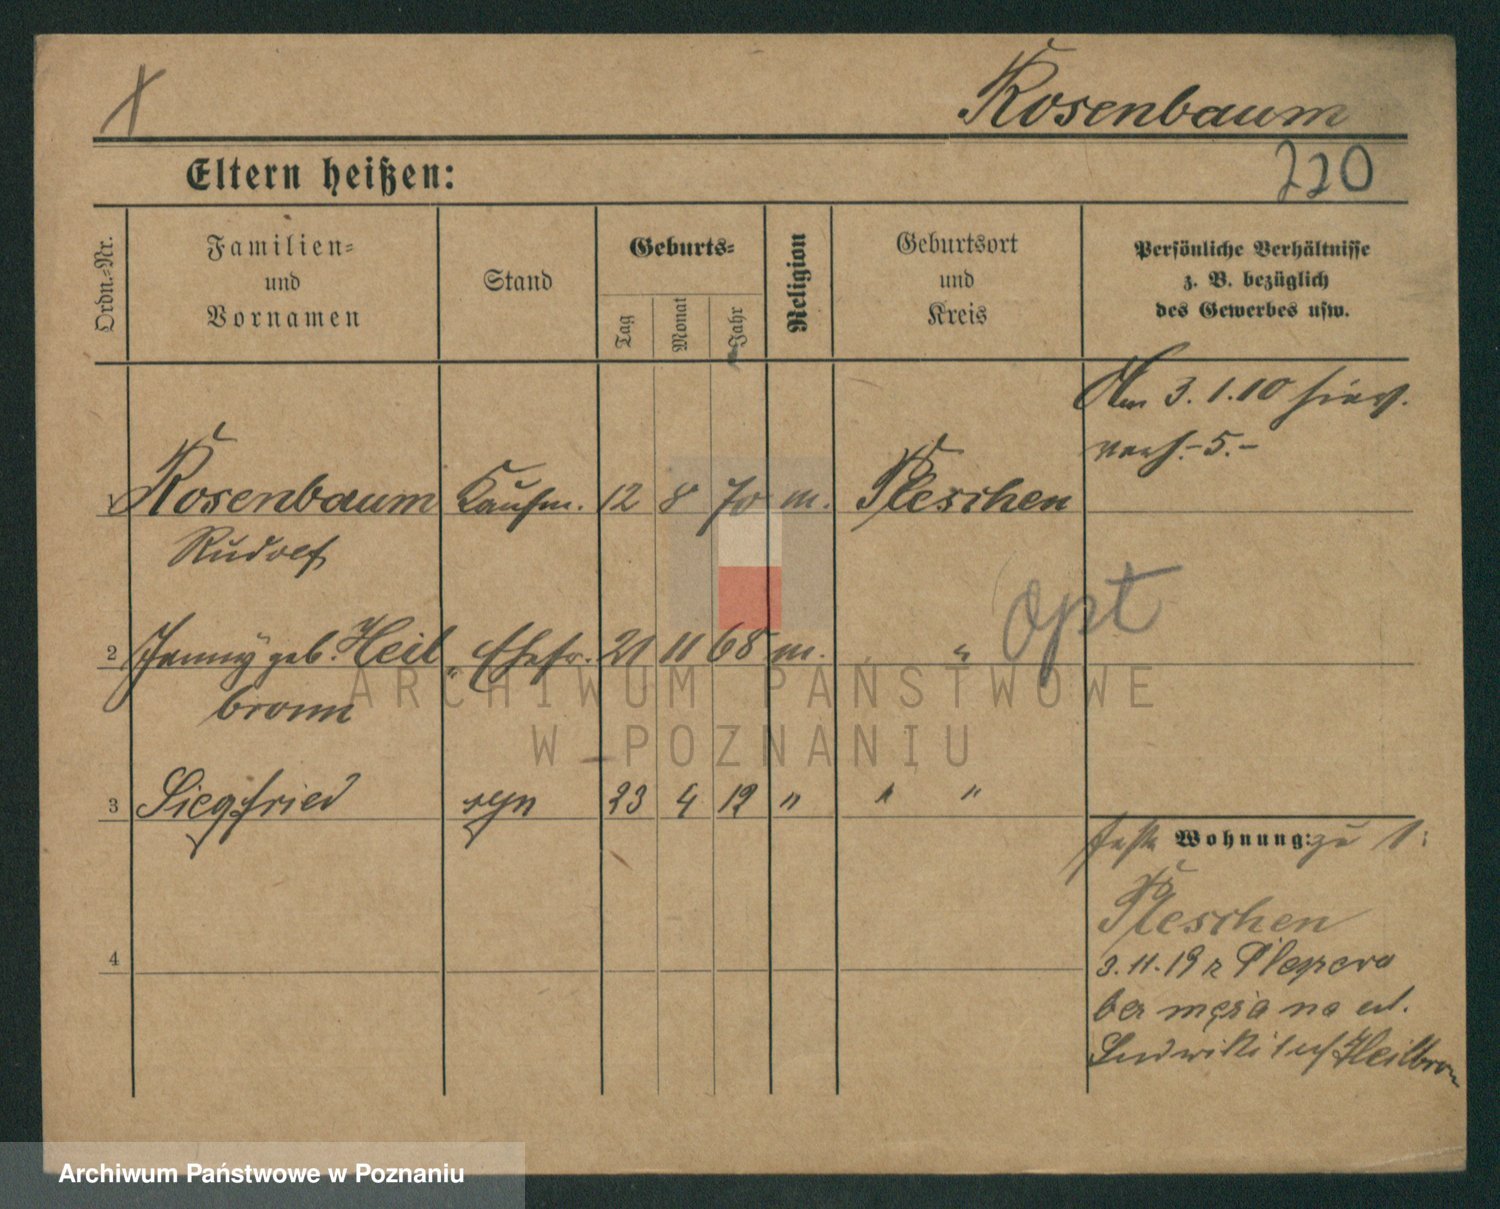 Rosenbaum
220
Eltern heißen:
Ordn.-Nr.
Familien-
und
Vornamen
Stand
Geburts-
Tag
Monat
Jahr
Religion
Geburtsort
und
Kreis
Persönliche Verhältnisse
z. B. bezüglich
des Gewerbes usw.
Am 3. 1. 10
5.-
Rosenbaum Kaufm. 12 8 70 m. Pleschen
Rudolf
opt
2 Jenny geb. Heil Ehefr. 21 11 68 m. "
bronn
3 Siegfried 23 4 12 " " "
Wohnung: zu 1:
Pleschen
4
3. 11. 19 z
bez męża na ul.
Heilbron
ARCHIWUM PAŃSTWOWE
W POZNANIU
Archiwum Państwowe w Poznaniu